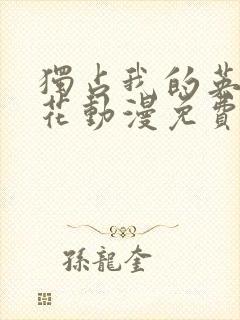 獨占我的英
花動漫免費
孫龍奎